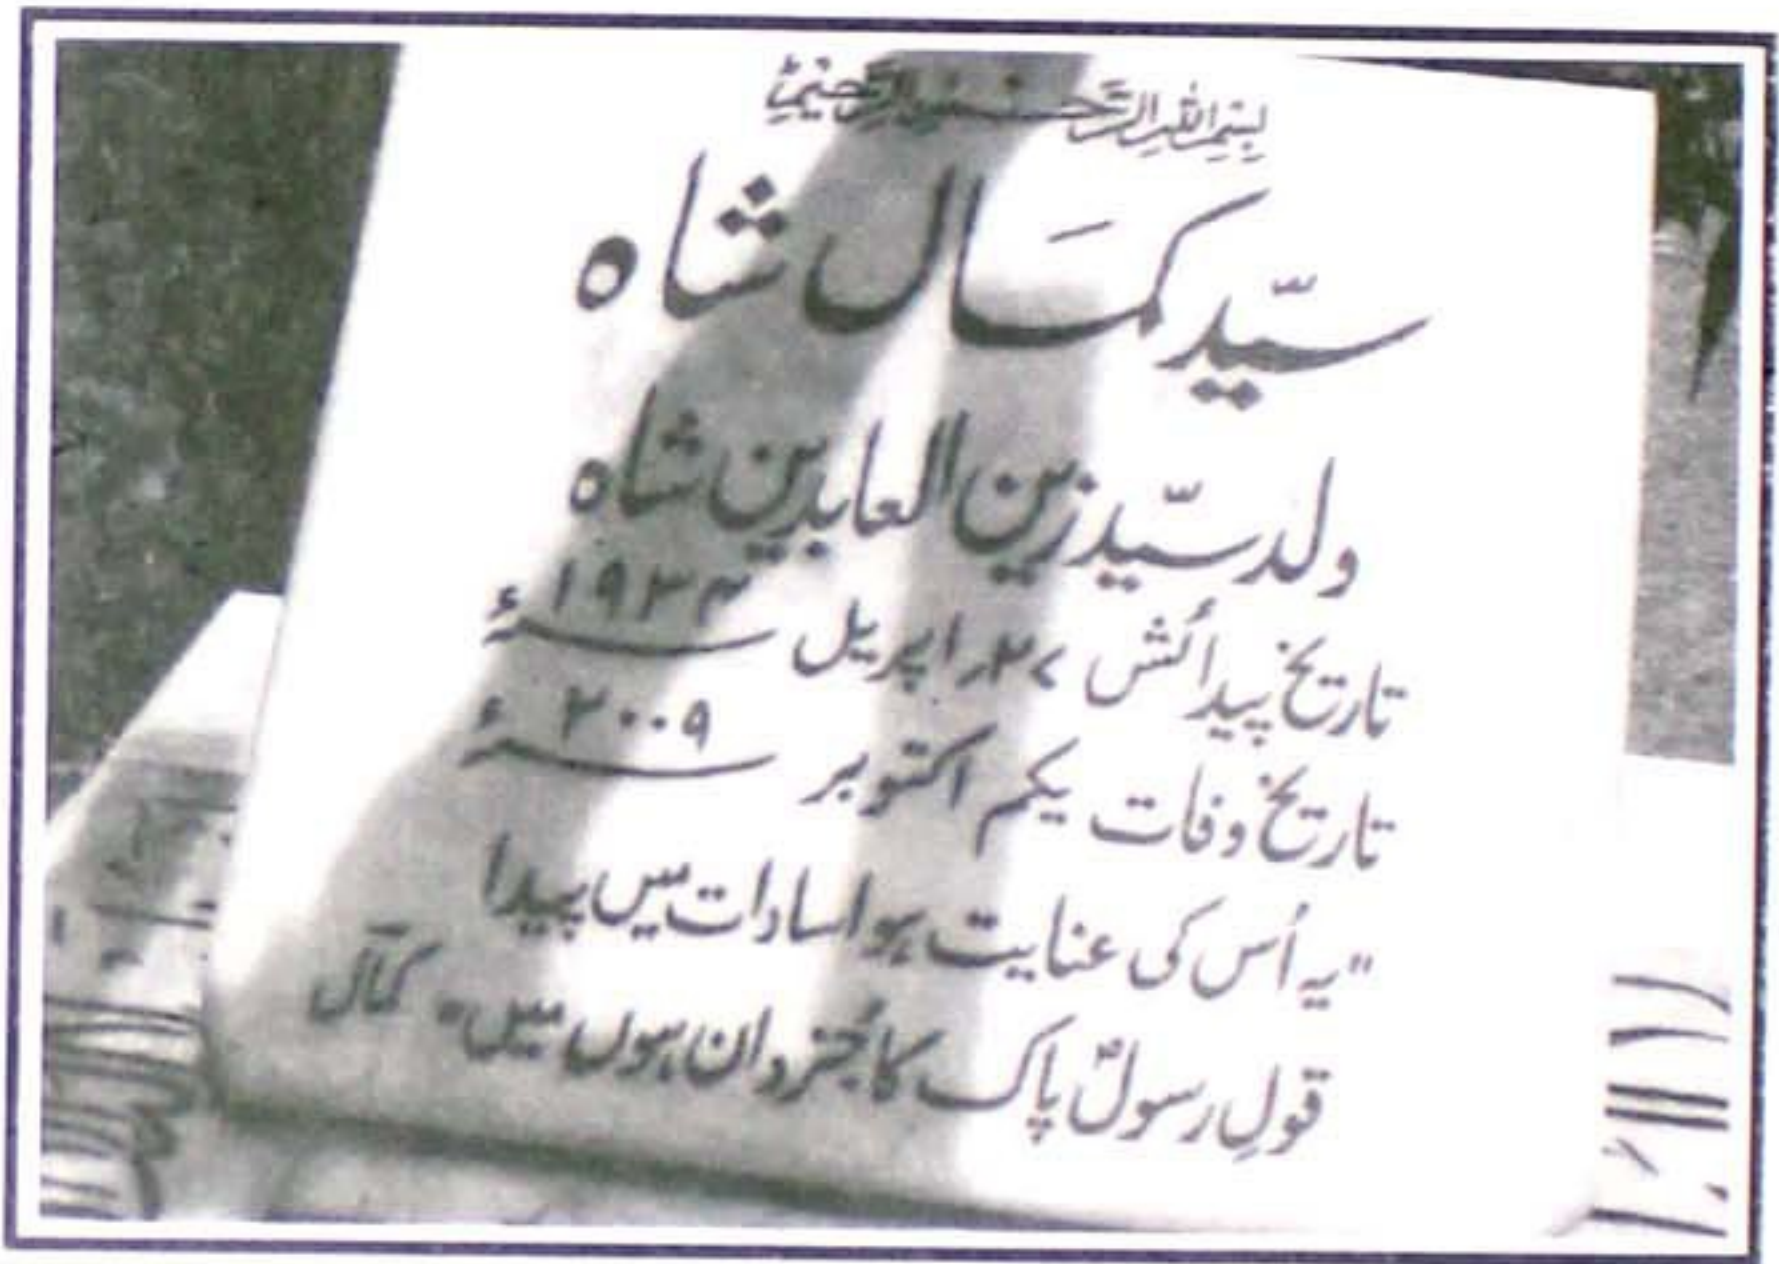 بسم اللہ الرحمن الرحیم
سیّد کمَال شاہ
ولد سیّد زین العابدین شاہ
تاریخ پیدائش ۲۷؍ اپریل ۱۹۳۴ء
تاریخ وفات یکم اکتوبر ۲۰۰۹ء
"یہ اُس کی عنایت ہوا سادات میں پیدا
قولِ رسولؐ پاک کا جُزدان ہوں میں" کمال